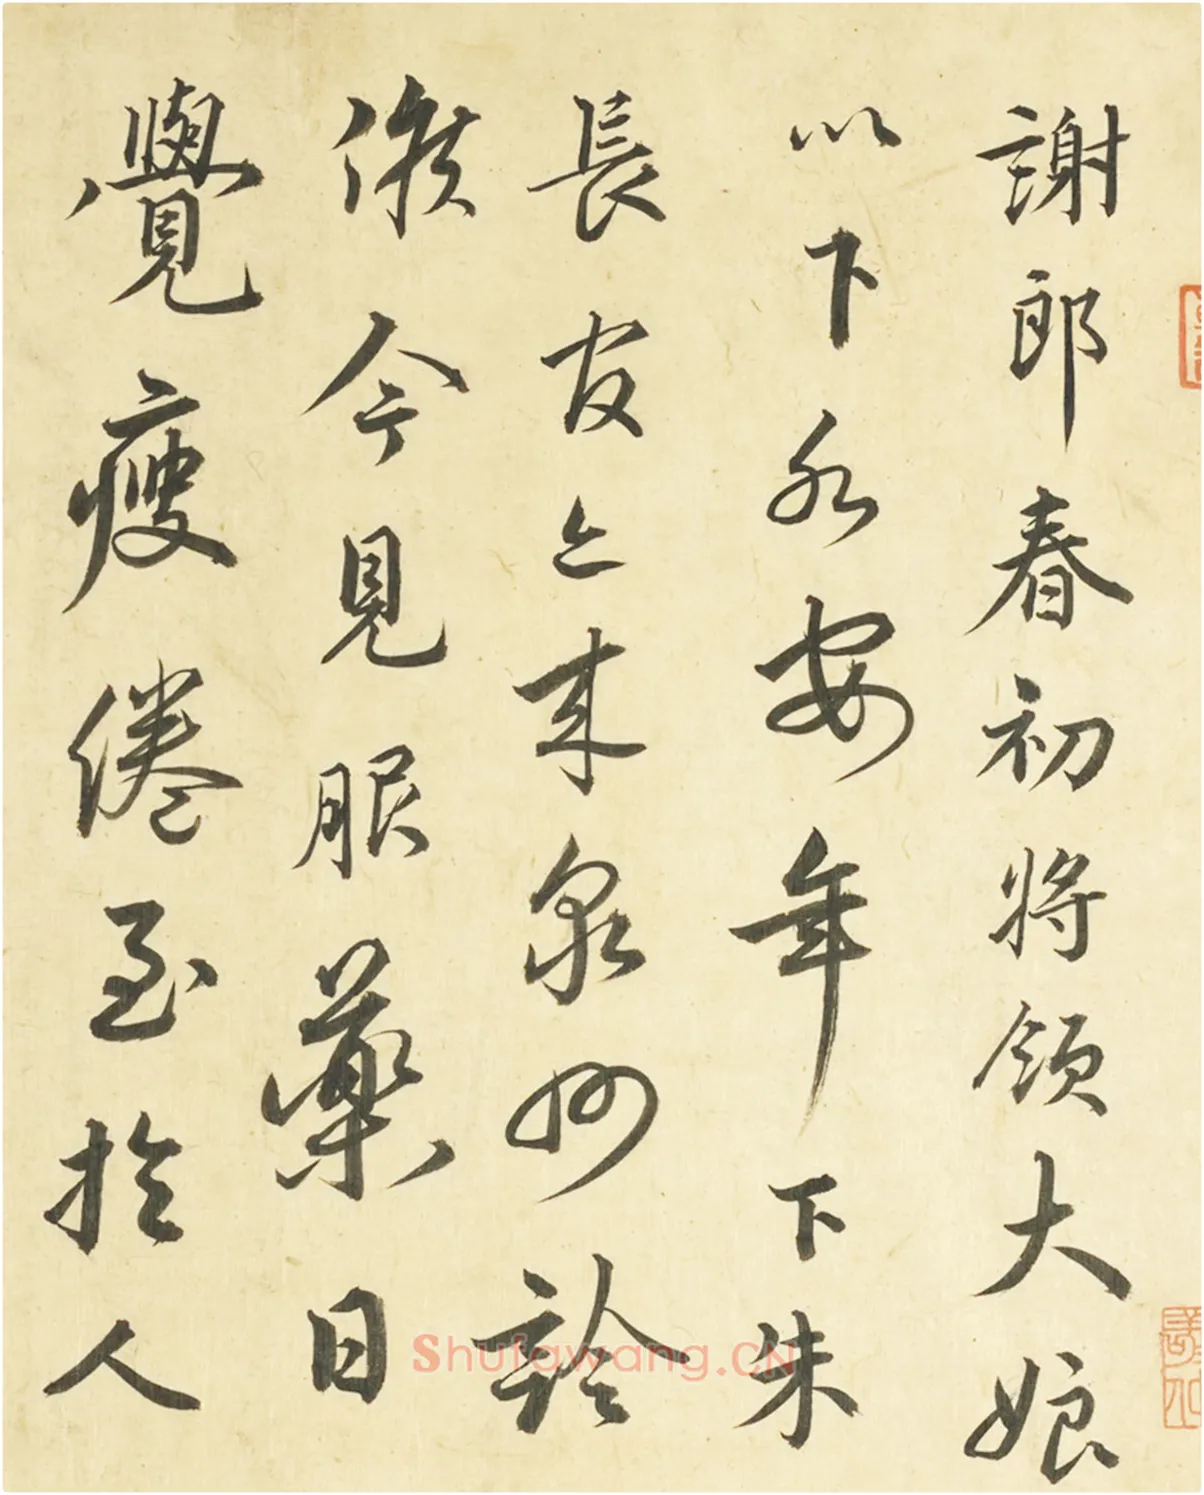 謝郎春初將領大娘
以下各安年下朱
長官亦來泉州診
候今見服藥日
覺瘦倦至於人
Shufawang.CN